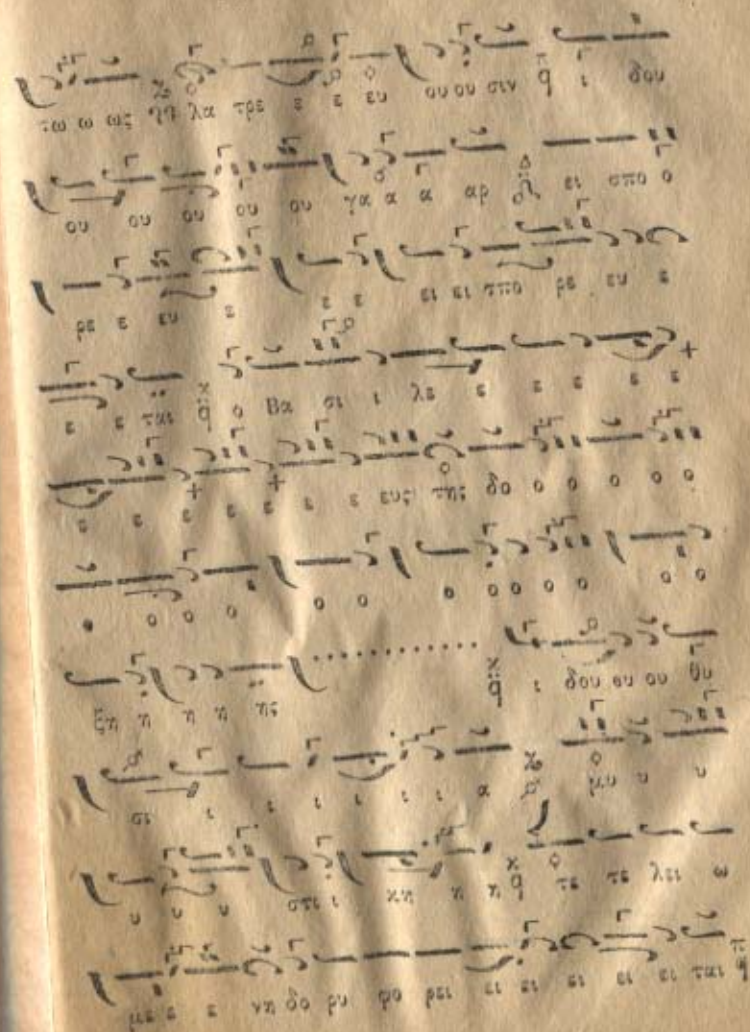 τω ω ως λα τρε ε ε ευ ου ου σιν ι δου
ου ου ου ου ου γα α α αρ ει σπο ο
ρε ε ευ ε ε ε ει ει σπο ρε ευ ε
ε ε ται ο Βα σι ι λε ε ε ε ε ε
ε ε ε ε ε ε ε ευς της δο ο ο ο ο ο
ο ο ο ο ο ο ο ο ο ο ο ο ο
ξη η η η ης ι δου ου ου θυ
σι ι ι ι ι ι ι α μυ υ υ
υ υ υ στι ι κη η η τε τε λει ω
με ε ε νη δο ρυ φο ρει ει ει ει ει ει ται